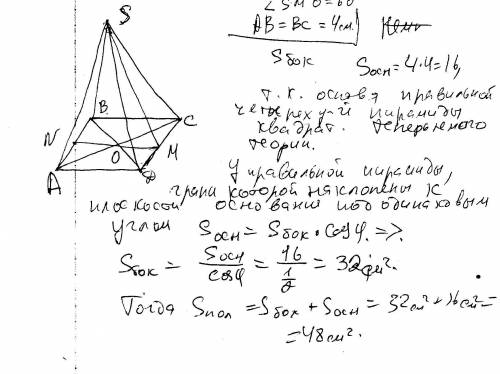 ∠SMO=60°
AB = BC = 4см.
Sбок
Sосн = 4·4 = 16,
т.к. основа правильной
четырех уг-й пирамиды
квадрат. Теперь много
теории.
У правильной пирамиды,
грани которой наклонены к
плоскости основания под одинаковым
углом Sосн = Sбок · cosφ. =>.
Sбок = Sосн/cosφ = 16/(1/2) = 32см².
Тогда Sпол = Sбок + Sосн = 32см² + 16см² =
= 48см².
S
B
C
N
O
M
A
D